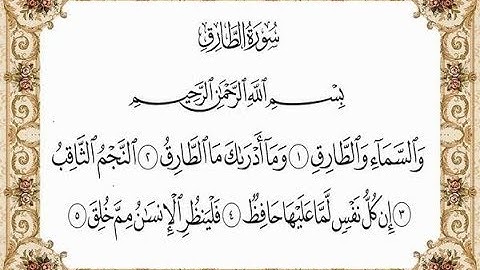 سُورَةُ الطَّارِقِ
بِسْمِ اللَّهِ الرَّحْمَٰنِ الرَّحِيمِ
وَٱلسَّمَآءِ وَٱلطَّارِقِ ١ وَمَآ أَدۡرَىٰكَ مَا ٱلطَّارِقُ ٢ ٱلنَّجۡمُ ٱلثَّاقِبُ
٣ إِن كُلُّ نَفۡسٖ لَّمَّا عَلَيۡهَا حَافِظٞ ٤ فَلۡيَنظُرِ ٱلۡإِنسَٰنُ مِمَّ خُلِقَ ٥